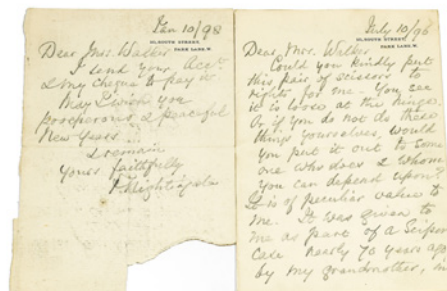 Jan 10/98
SOUTH STREET,
PARK LANE. W.
Dear Mrs. Walker
I send your Acct.
& my cheque to pay it
May I wish you
prosperous & peaceful
New Year
I remain
Yours faithfully
F. Nightingale
July 10/96
SOUTH STREET,
PARK LANE. W.
Dear Mrs. Walker
Could you kindly put
this pair of scissors to
rights for me. You see
it is loose at the hinge
Or if you do not do these
things yourselves, would
you put it out to some
one who does & whom
you can depend upon?
It is of peculiar value to
me. It was given to
me as part of a Scissor
Case nearly 70 years ago
by my grandmother, in